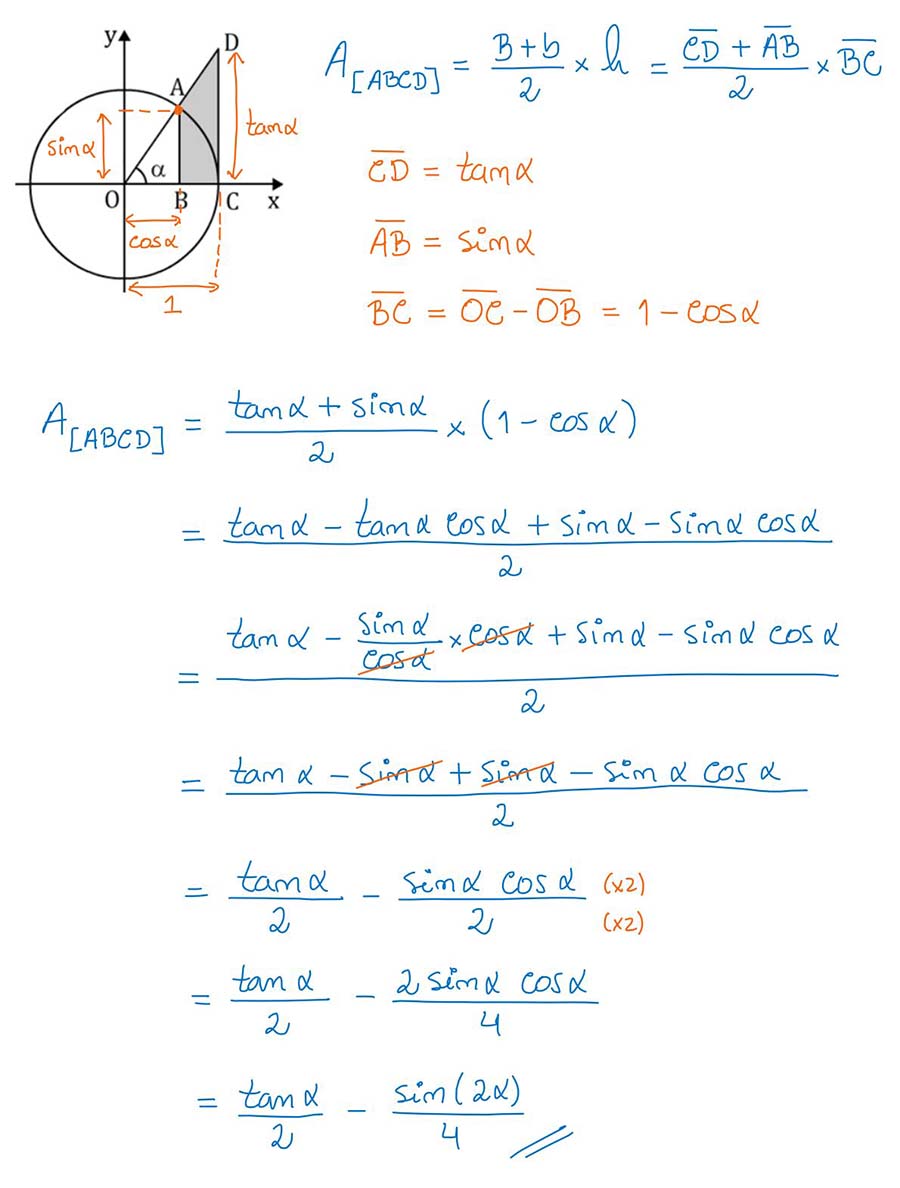 y D
A
sinα tanα
α
O B C x
cosα
1
A[ABCD] = (B+b)/2 × h = (C̅D̅ + A̅B̅)/2 × B̅C̅
C̅D̅ = tanα
A̅B̅ = sinα
B̅C̅ = O̅C̅ − O̅B̅ = 1 − cosα
A[ABCD] = (tanα + sinα)/2 × (1 − cosα)
= (tanα − tanα cosα + sinα − sinα cosα)/2
= (tanα − sinα/cosα × cosα + sinα − sinα cosα)/2
= (tanα − sinα + sinα − sinα cosα)/2
= tanα/2 − (sinα cosα)/2 (x2) (x2)
= tanα/2 − (2 sinα cosα)/4
= tanα/2 − sin(2α)/4